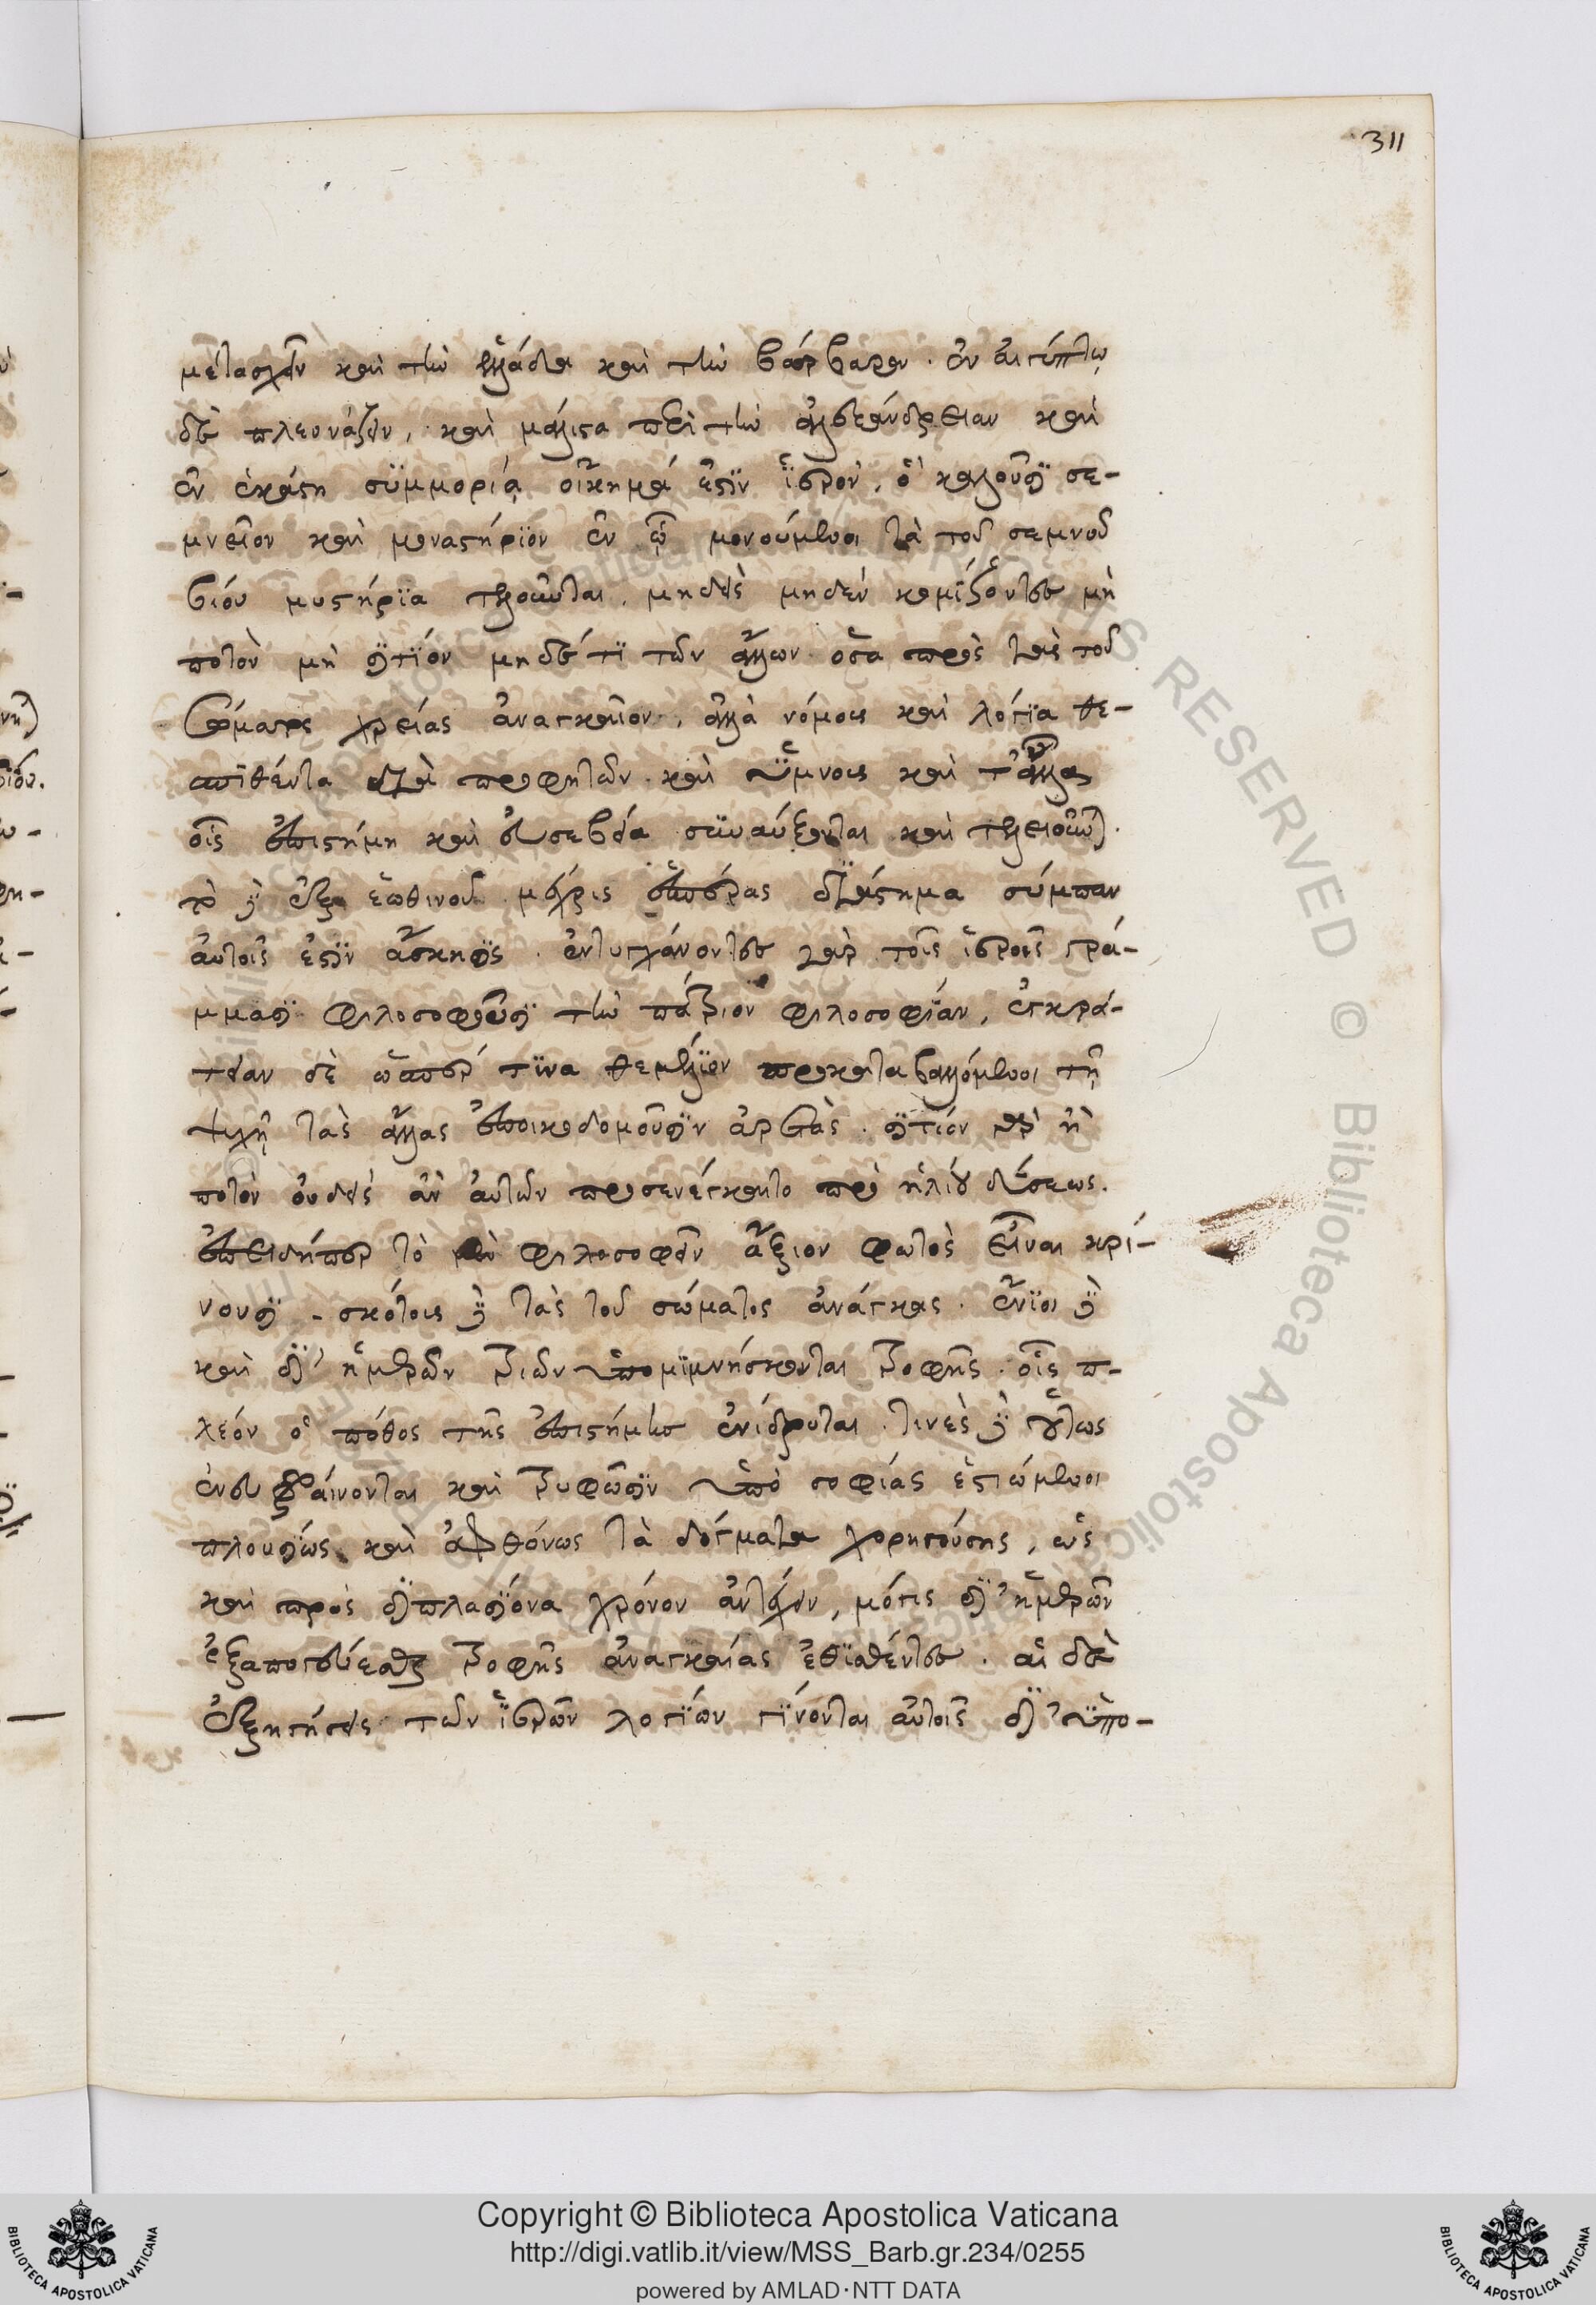 311
μετασχεῖν καὶ τὴν ἑλλάδα καὶ τὴν βάρβαρον. ἐν αἰγύπτῳ
δὲ πλεονάζειν, καὶ μάλιστα περὶ τὴν ἀλεξάνδρειαν καὶ
ἐν ἑκάστη συμμορίᾳ οἴκημά ἐστιν ἱερὸν, ὃ καλοῦσι σε-
μνεῖον καὶ μοναστήριον ἐν ᾧ μονούμενοι τὰ τοῦ σεμνοῦ
βίου μυστήρια τελοῦνται. μηδεὶς μηδὲν κομίζοντες μὴ
ποτὸν μὴ σιτίον μηδέ τι τῶν ἄλλων ὅσα πρὸς τὰς τοῦ
σώματος χρείας ἀναγκαῖον, ἀλλὰ νόμους καὶ λόγια θε-
σπισθέντα διὰ προφητῶν καὶ ὕμνους καὶ τἄλλα
οἷς ἐπιστήμη καὶ εὐσέβεια συναύξονται καὶ τελειοῦνται.
τὸ δὲ ἐξ ἑωθινοῦ μέχρις ἑσπέρας διάστημα σύμπαν
αὐτοῖς ἐστιν ἄσκησις. ἐντυγχάνοντες γὰρ τοῖς ἱεροῖς γρά-
μμασι φιλοσοφοῦσι τὴν πάτριον φιλοσοφίαν, ἐγκρά-
τειαν δὲ ὥσπερ τινα θεμέλιον προκαταβαλλόμενοι τῇ
ψυχῇ τὰς ἄλλας ἐποικοδομοῦσιν ἀρετὰς. σιτίον γὰρ ἢ
ποτὸν οὐδεὶς ἂν αὐτῶν προσενέγκαιτο πρὸ ἡλίου δύσεως.
ἐπειδήπερ τὸ μὲν φιλοσοφεῖν ἄξιον φωτὸς εἶναι κρί-
νουσι. σκότους δὲ τὰς τοῦ σώματος ἀνάγκας. ἔνιοι δὲ
καὶ διʼ ἡμερῶν τριῶν ὑπομιμνήσκονται τροφῆς. οἷς π-
λέον ὁ πόθος τῆς ἐπιστήμης ἐνίδρυται. τινὲς δὲ οὕτως
ἐνευφραίνονται καὶ τρυφῶσιν ὑπὸ σοφίας ἑστιώμενοι
πλουσίως καὶ ἀφθόνως τὰ δόγματα χορηγούσης, ὡς
καὶ πρὸς διπλασίονα χρόνον ἀντέχειν, μόγις διʼ ἡμερῶν
ἓξ ἀπογεύεσθαι τροφῆς ἀναγκαίας ἐθισθέντες. αἱ δὲ
ἐξηγήσεις τῶν ἱερῶν λογίων γίνονται αὐτοῖς διʼ ὑπο-
Copyright © Biblioteca Apostolica Vaticana
http://digi.vatlib.it/view/MSS_Barb.gr.234/0255
powered by AMLAD·NTT DATA